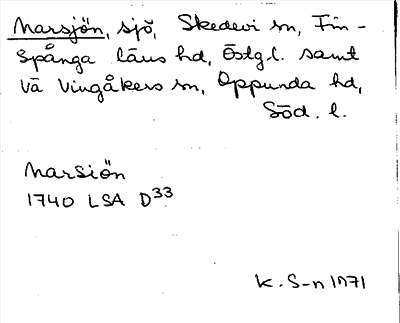 Marsjön, sjö, Skedevi sn, Fin-
spånga läns hd, Östg.l. samt
Vä Vingåkers sn, Oppunda hd,
Söd. l.
Marsiön
1740 LSA D33
K. S-n 1971